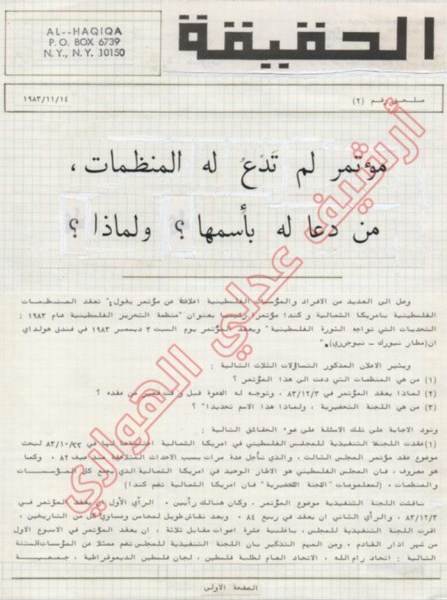 AL--HAQIQA
P.O. BOX 6739
N.Y., N.Y. 10150
الحقيقة
ملحق رقم (٢)
١٩٨٣/١١/١٤
مؤتمر لم تَدْعُ له المنظمات،
من دعا له بأسمها؟ ولماذا؟
وصل الى العديد من الافراد والمؤسسات الفلسطينية اعلانا عن مؤتمر يقول "تعقد المنظمات
الفلسطينية بامريكا الشمالية وكندا مؤتمر وطنيا بعنوان "منظمة التحرير الفلسطينية عام ١٩٨٣؛
التحديات التي تواجه الثورة الفلسطينية" ويعقد المؤتمر يوم السبت ٣ ديسمبر ١٩٨٣ في فندق هوليداي
ان(مطار نيورك - نيوجرزي)."
ويثير الاعلان المذكور التساؤلات الثلاث التالية :
(١) من هي المنظمات التي دعت الى هذا المؤتمر؟
(٢) لماذا يعقد المؤتمر في ٨٣/١٢/٣، وتوجه له الدعوة قبل وقت قصير من عقده ؟
(٣) من هي اللجنة التحضيرية ، ولماذا هذا الاسم تحديدا؟
ونود الاجابة على تلك الاسئلة على ضوء الحقائق التالية :
(١)عقدت اللجنة التنفيذية للمجلس الفلسطيني في امريكا الشمالية اجتماعا لها في ٨٣/١٠/٢٢ لبحث
موضوع عقد مؤتمر المجلس الثالث، والذي تأجل عدة مرات بسبب الاحداث منذ صيف ٨٢، وكما
هو معروف، فان المجلس الفلسطيني هو الاطار الوحيد في امريكا الشمالية الذي يجمع كل المؤسسات
والمنظمات، (لمعلومات "اللجنة التحضيرية" فان امريكا الشمالية تضم كندا)
ناقشت اللجنة التنفيذية موضوع المؤتمر، وكان هنالك رأيين، الرأي الأول ان يعقد المؤتمر في
٨٣/١٢/٣ والرأي الثاني ان يعقد في ربيع ٨٤، وبعد نقاش طويل لمحاسن ومساوئ كل من التاريخين،
اقرت اللجنة التنفيذية للمجلس، باغلبية عشرة اصوات مقابل ثلاثة، ان يعقد المؤتمر في الاسبوع الاول
من شهر اذار القادم، ومن المهم التذكير بان اللجنة التنفيذية للمجلس تضم ممثلا عن المؤسسات الستة
التالية : اتحاد رام الله، الاتحاد العام لطلبة فلسطين، لجان فلسطين الديموقراطية، جمعية
الصفحة الاولى
أرشيف عدلي الهواري